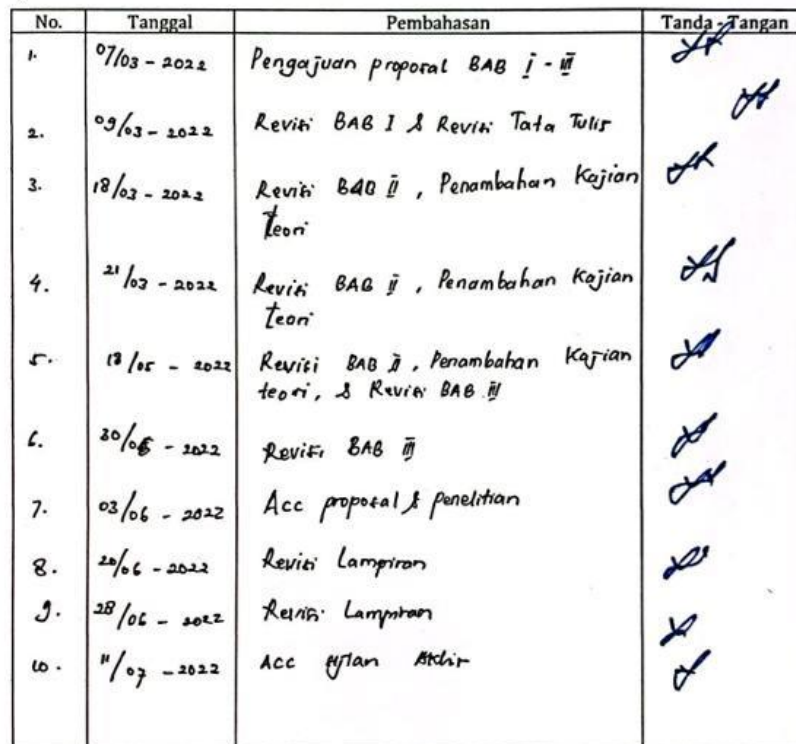 No. Tanggal Pembahasan Tanda - Tangan
1. 07/03 - 2022 Pengajuan proposal BAB I - III
2. 09/03 - 2022 Revisi BAB I & Revisi Tata Tulis
3. 18/03 - 2022 Revisi BAB II, Penambahan Kajian
teori
4. 21/03 - 2022 Revisi BAB II, Penambahan Kajian
teori
5. 18/05 - 2022 Revisi BAB II, Penambahan Kajian
teori, & Revisi BAB III
6. 30/05 - 2022 Revisi BAB III
7. 03/06 - 2022 Acc proposal & penelitian
8. 20/06 - 2022 Revisi Lampiran
9. 28/06 - 2022 Revisi Lampiran
10. 11/07 - 2022 Acc Ujian Akhir